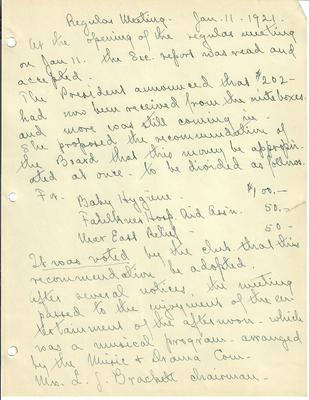 Regular Meeting. Jan. 11 - 1921.
At the opening of the regular meeting
on Jan 11. the Sec. report was read and
accepted.
The President announced that $202-
had now been received from the miteboxes
and more was still coming in.
She proposed the recommendation of
the Board that this money be appropri-
ated at once - to be divided as follows.
For Baby Hygiene. $100.-
Faulkner Hosp. Aid Ass'n. 50.-
Near East Relief - 50 -
It was voted by the club that this
recommendation be adopted.
After several notices. the meeting
passed to the enjoyment of the en-
tertainment of the afternoon - which
was a musical program - arranged
by the Music & Drama Com.
Mrs. L. J. Brackett chairman -